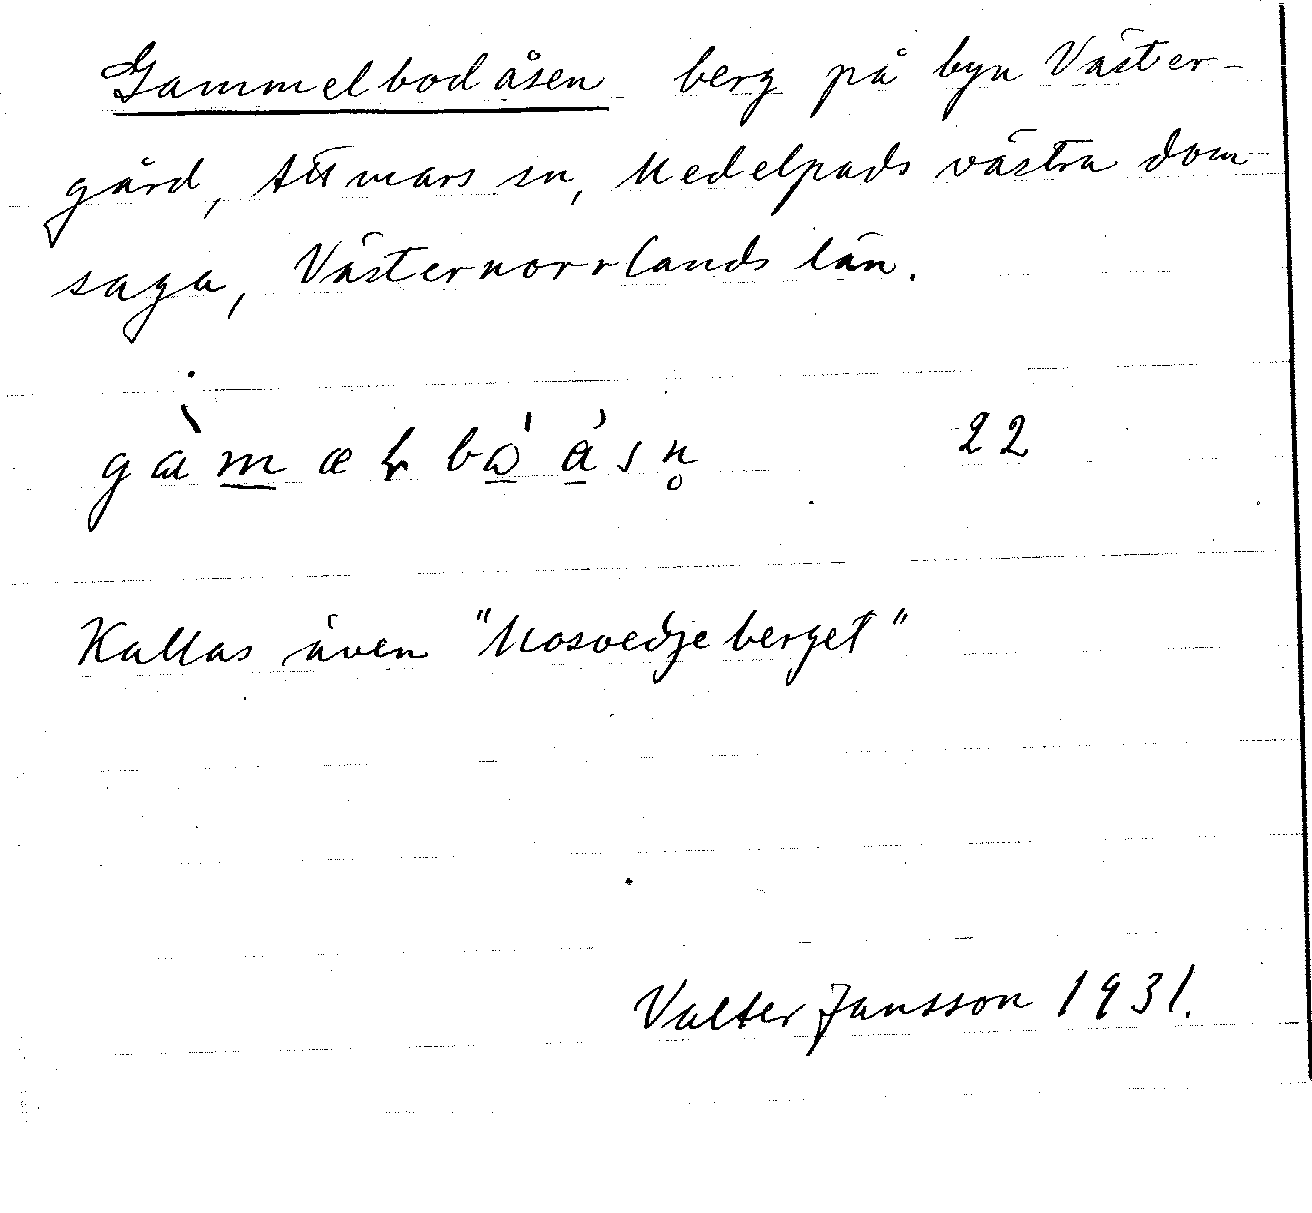 Gammelbodåsen berg på byn Väster-
gård, Attmars sn, Medelpads västra dom-
saga, Västernorrlands län.
gàmæɽbǻ ǻsn̥ 22
Kallas även "Mosvedjeberget"
Valter Jansson 1931.